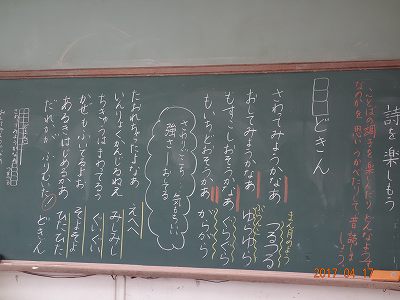 詩を楽しもう
ことばの調子を楽しんだり、どんなようすな
なのかを思いうかべたりして音読しま
しょう
どきん
さわってみようかなあ つるつる
おしてみようかなあ ゆらゆら
もすこしおそうかなあ ぐらぐら
もいちどおそうか がらがら
さわりごこち 気もち
強さ…おしてる
たおれちゃったよなあ えへへ
いんりょくかんじるねえ みしみし
ちきゅうはまわってるう ぐいぐい
かぜもふいてるよお そよそよ
あるきはじめるかあ ひたひた
だれかがふりむいた! どきん
2017.04.17